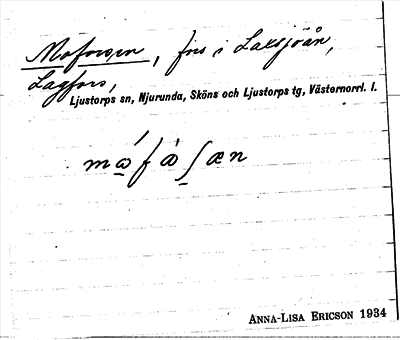 Moforsen, fors i Laxsjöån,
Lagfors,
Ljustorps sn, Njurunda, Sköns och Ljustorps tg, Västernorrl. l.
ANNA-LISA ERICSON 1934